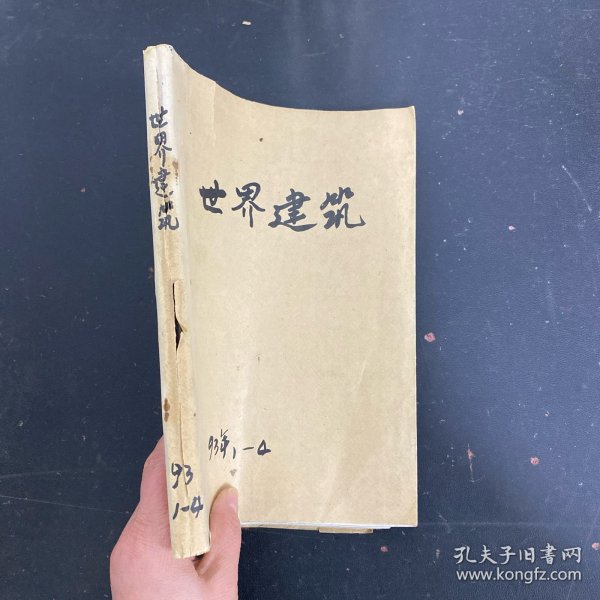 世界建筑
93
1-4
世界建筑
93年1-4
孔夫子旧书网
www.kongfz.com